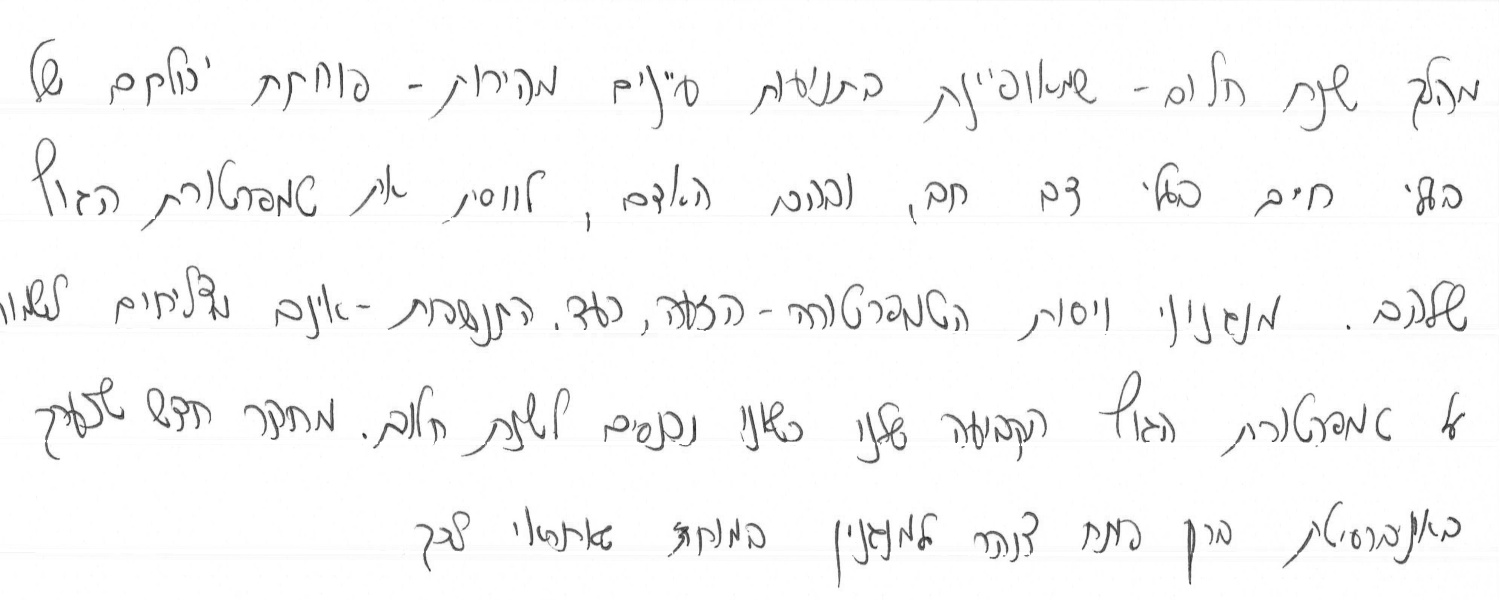 מהלך שנת חלום - שמאופיינת בתנועות עיניים מהירות - פוחתת יכולתם של
בעלי חיים בעלי דם חם, ובהם האדם, לווסת את טמפרטורת הגוף
שלהם. מנגנוני ויסות הטמפרטורה - הזעה, רעד, התנשפות - אינם מצליחים לשמור
על טמפרטורת הגוף הקבועה שלנו כשאנו נכנסים לשנת חלום. מחקר חדש שנערך
באוניברסיטת ברן פתח צוהר למנגנון במוח שאחראי לכך